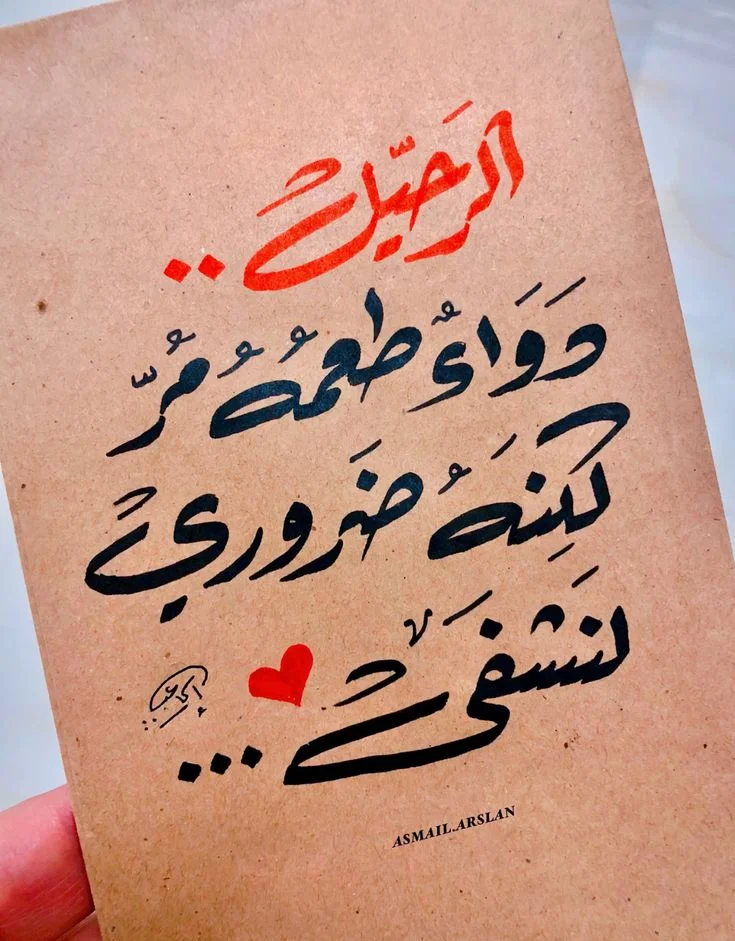 الرَحيّل ..
دَوَاءٌ طعمُهُ مُرّ
لكِنَهُ ضَروري
لنَشفَى ...
ASMAIL.ARSLAN